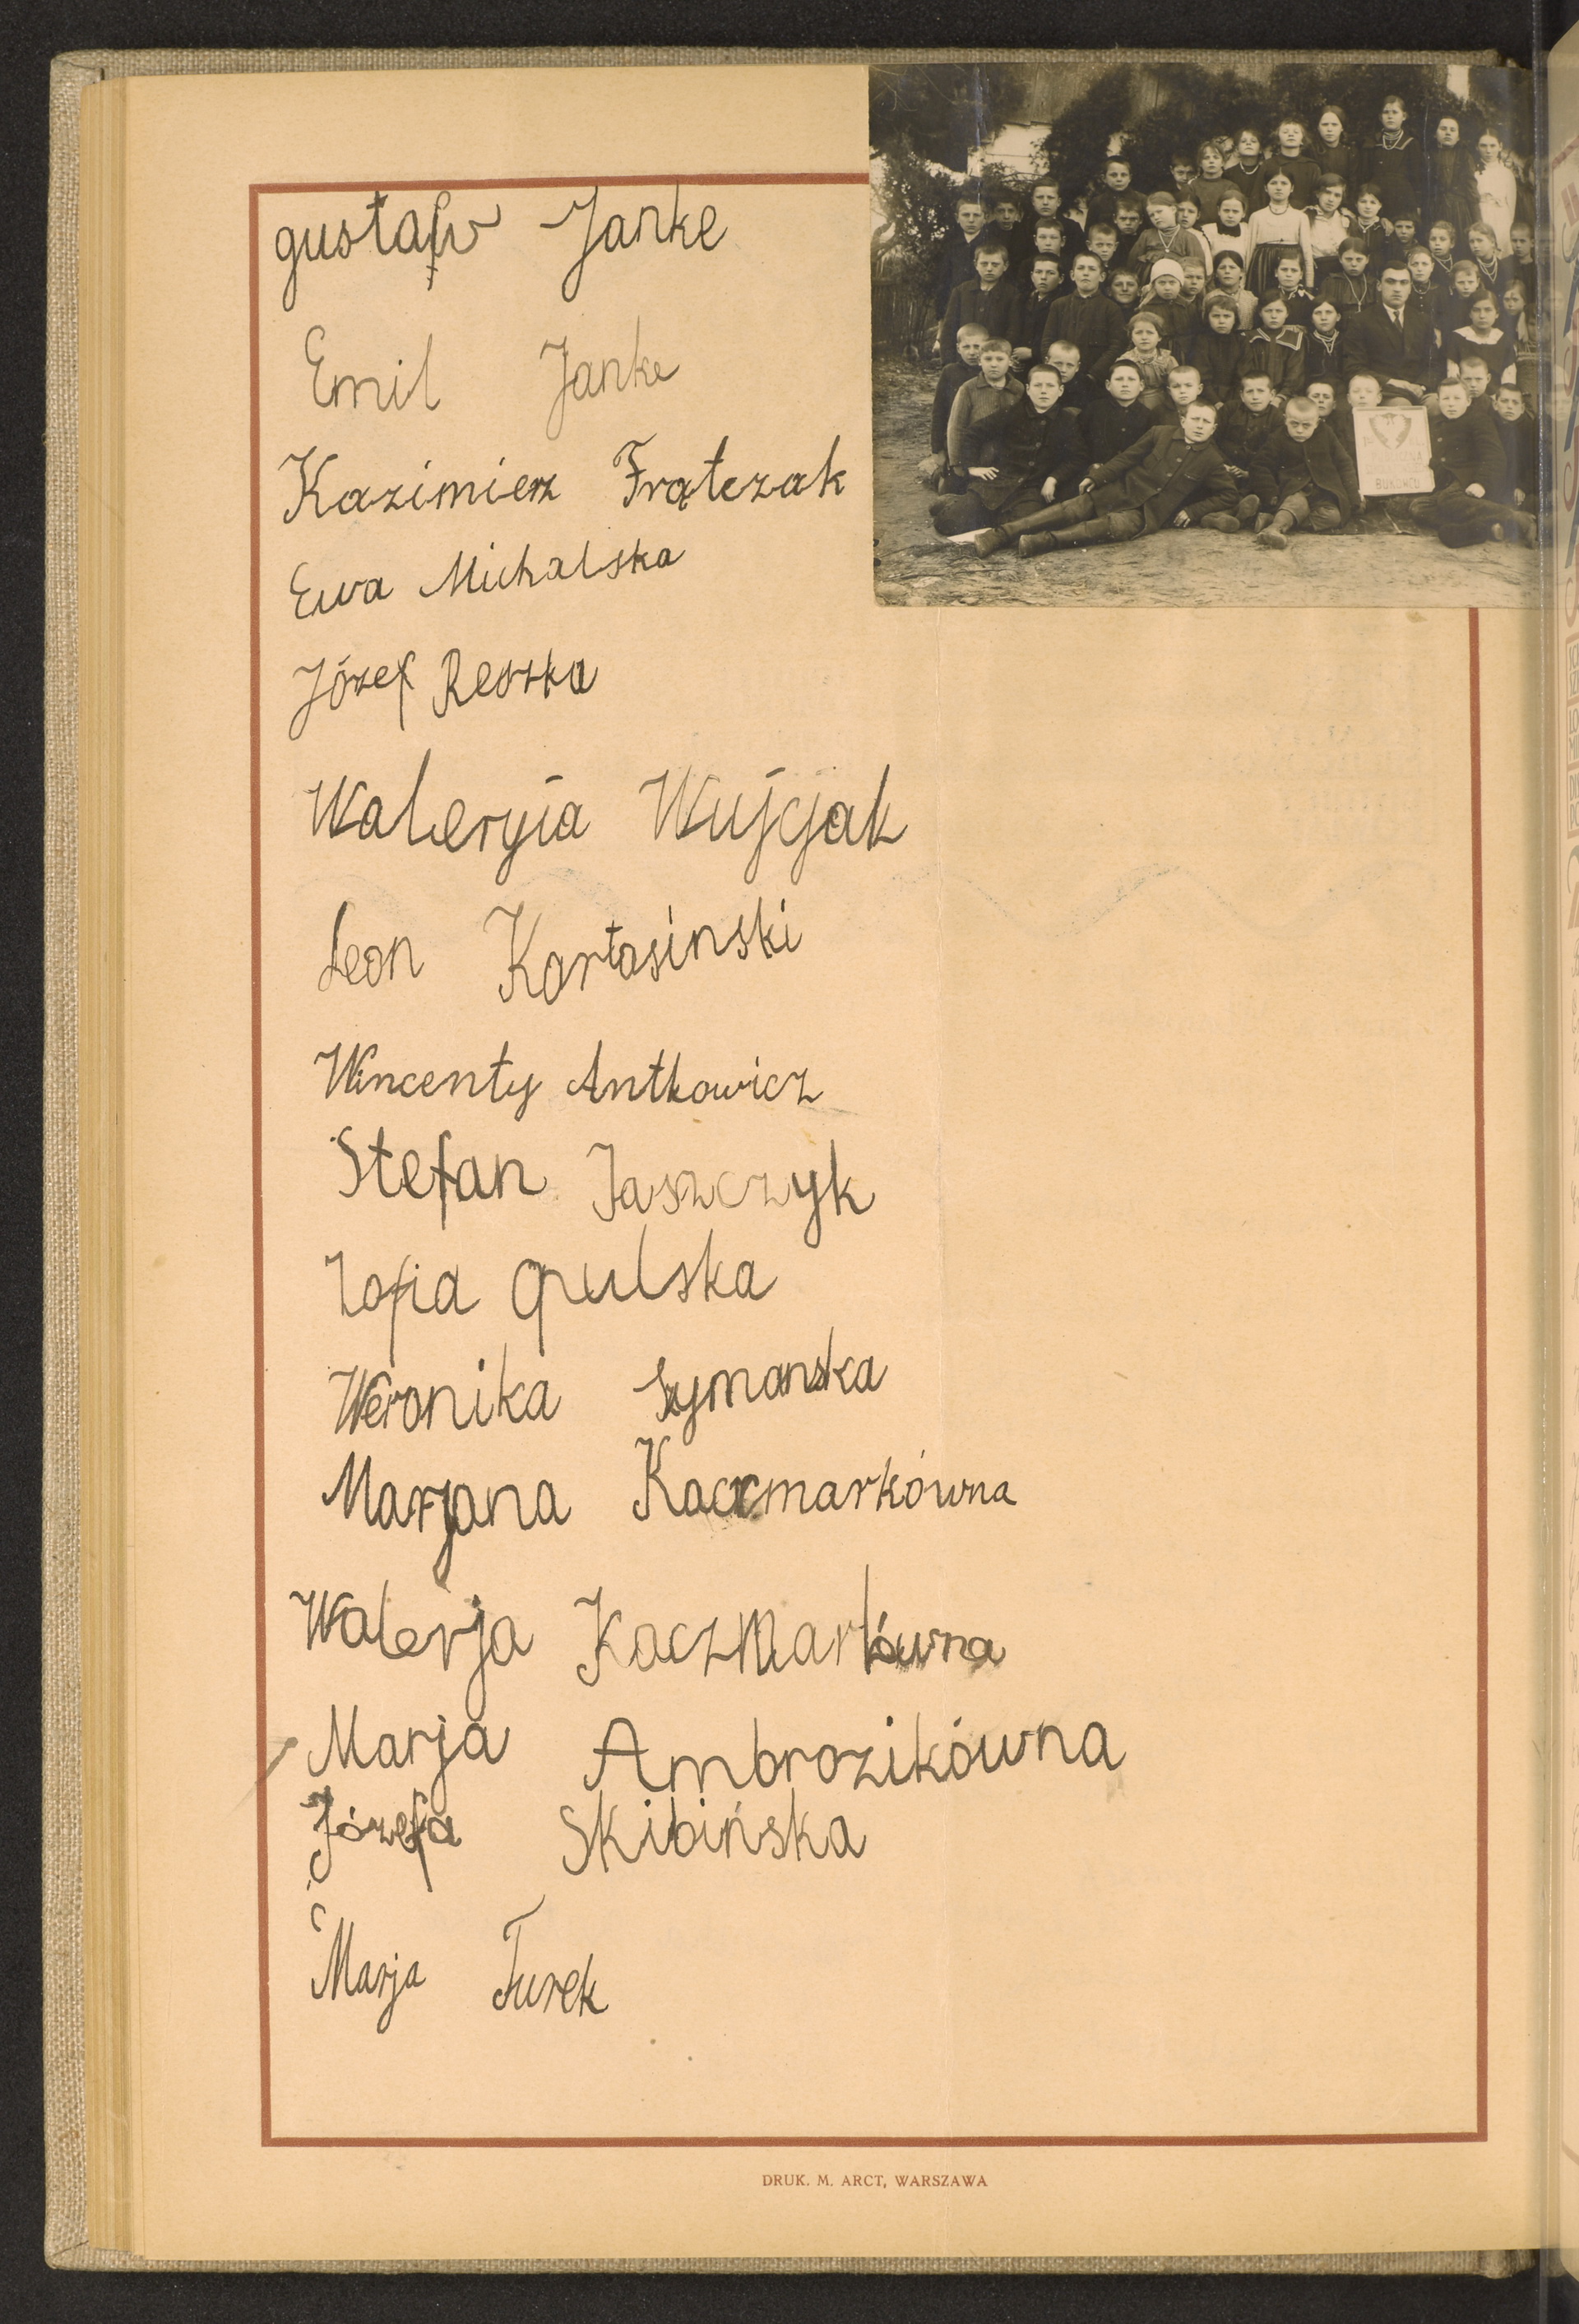 gustaw Janke
Emil Janke
Kazimierz Frątczak
Ewa Michalska
Józef Reszka
Waleryia Wujcjak
Leon Kartasinski
Wincenty Antkowicz
Stefan Jaszczyk
Zofia Opulska
Weronika Szymanska
Marjana Kaczmarkówna
Walerja Kaczmarkówna
Marja Ambrozikówna
Józefa Skibińska
Marja Turek
BUKOWCU
DRUK. M. ARCT, WARSZAWA